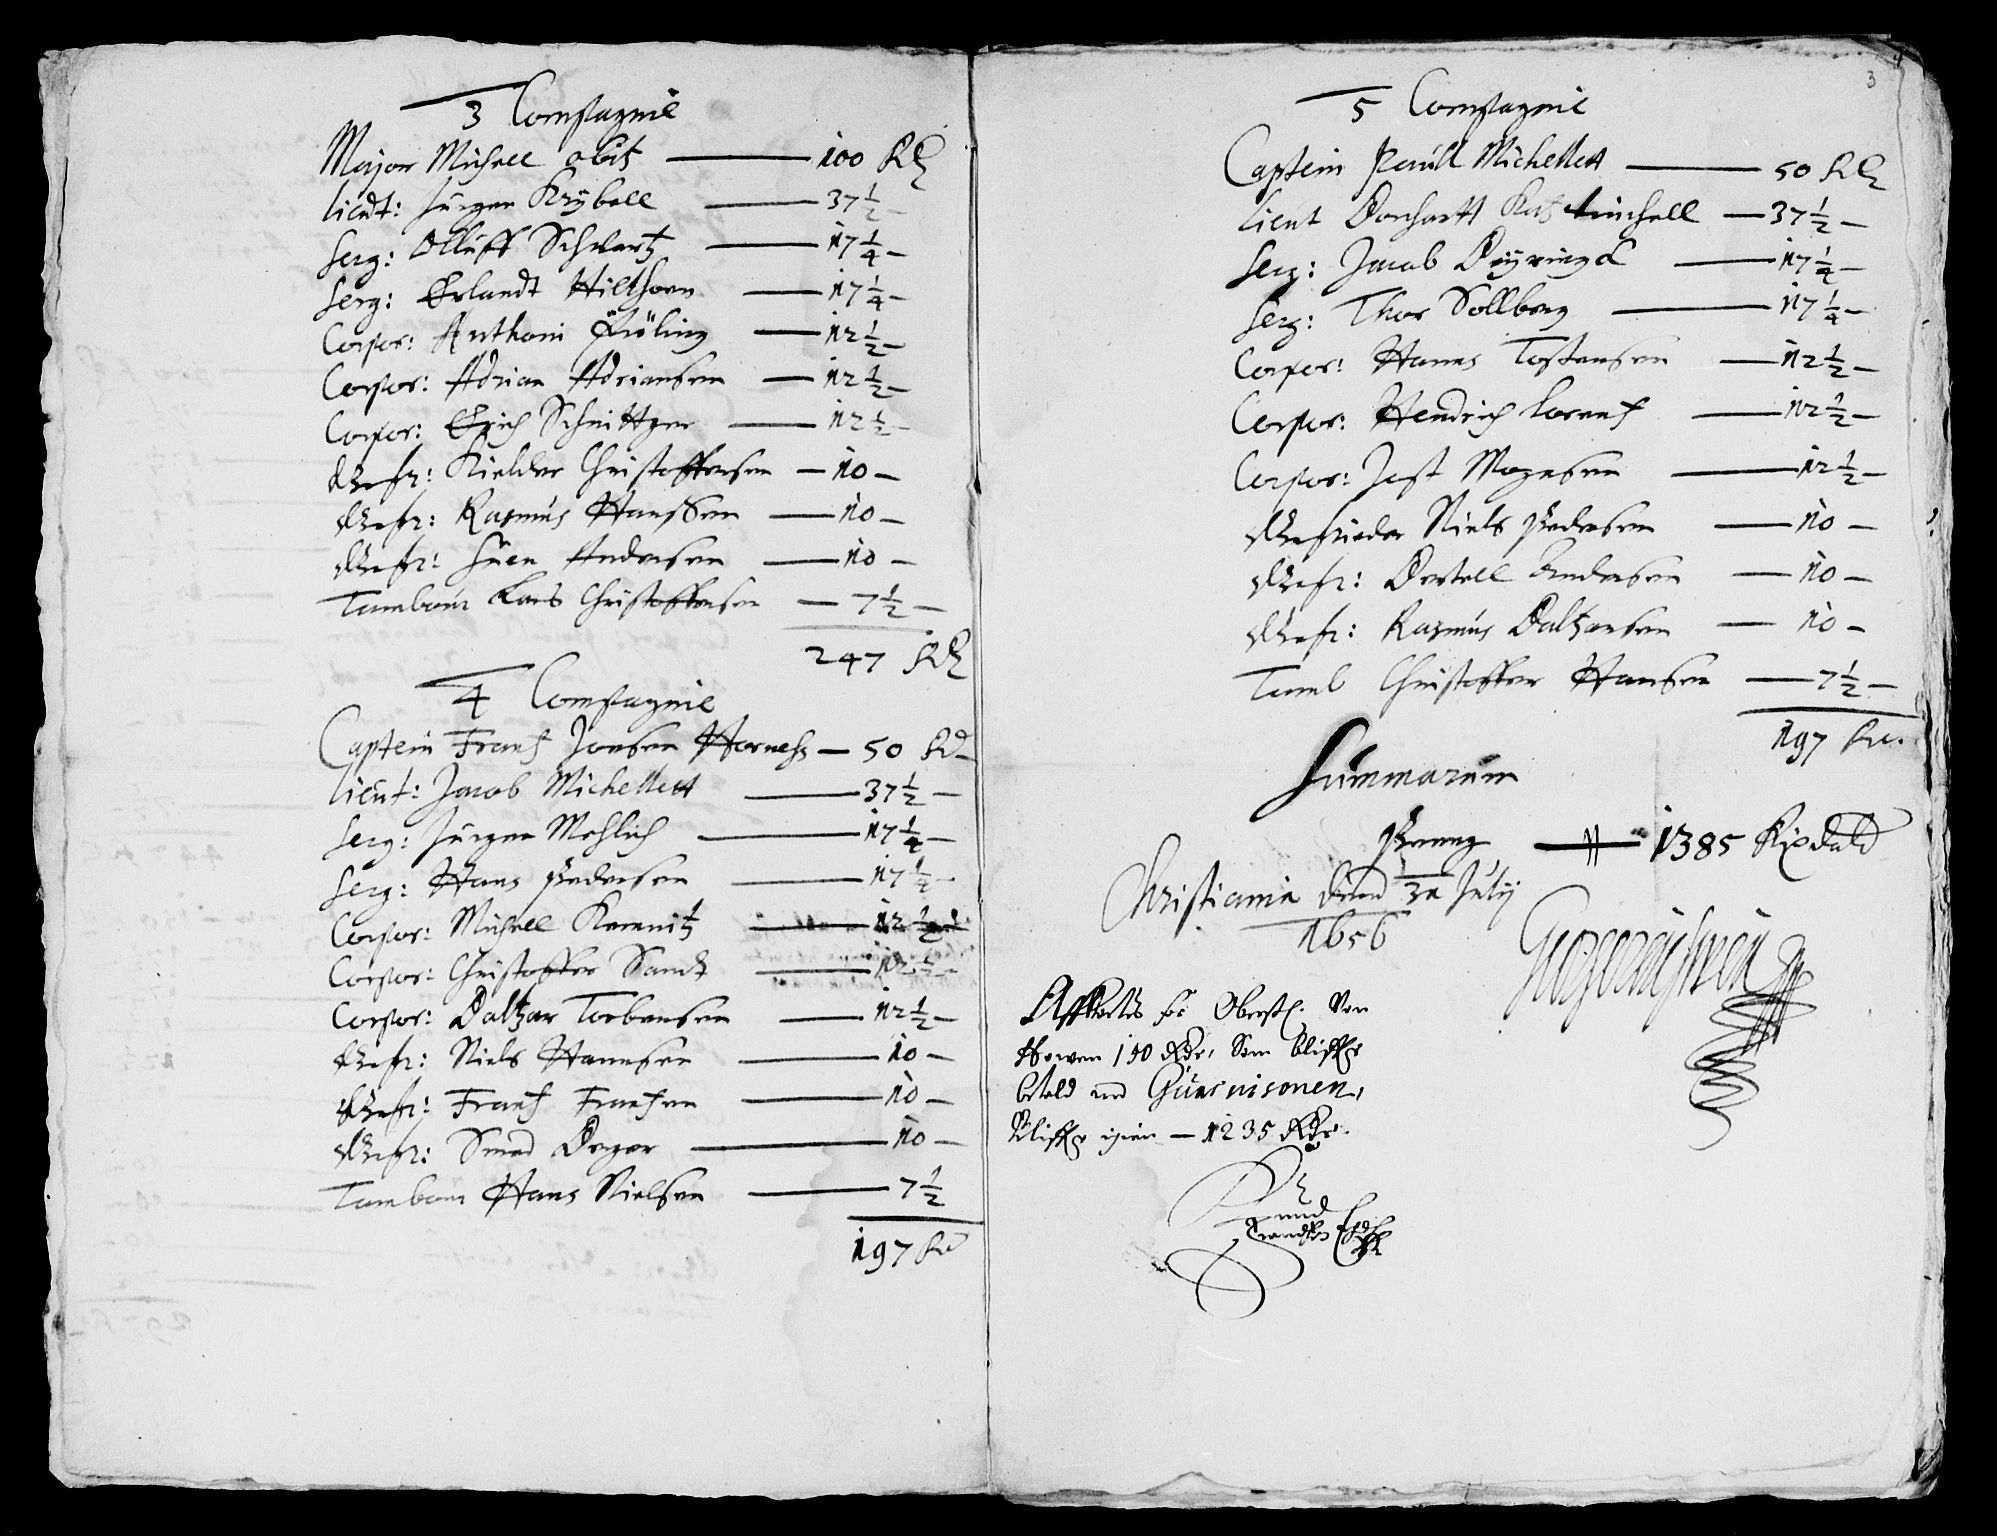 3 Compagnie
Major Michell obitz — 100 Rd
Lieut: Jürgen Krybell — 37½ —
Serg: Olluff Schwartz — 17¼ —
Serg: Erlandt Hilthorn — 17¼ —
Corpor: Anthoni Fröling — 12½ —
Corpor: Adrian Adriansen — 12½ —
Corpor: Erich Schnittger — 12½ —
Gefr: Kielder Christoffersen — 10 —
Gefr: Rasmus Hanssen — 10 —
Gefr: Suen Andersen — 10 —
Tambour Lars Christoffersen — 7½ —
247 Rd
4 Compagnie
Captein Frans Jonsen Harness — 50 Rd
Lieut: Jacob Michellett — 37½ —
Serg: Jürgen Mehlich — 17¼ —
Serg: Hans Pedersen — 17¼ —
Corpor: Michell Kemnitz — 12½
Corpor: Christoffer Sandt — 12½ —
Corpor: Baltzar Torbensen — 12½ —
Gefr: Niels Hannsen — 10 —
Gefr: Frans Fransen — 10 —
Gefr: Smed Beger — 10 —
Tambour Hans Nielsen — 7½
197 Rd
3
5 Compagnie
Captein Paull Michellett — 50 Rd
Lieut Borhartt — 37½ —
Serg: Jacob — 17¼ —
Serg: Thor Sollberg — 17¼ —
Corpor: Hanns Tostensen — 12½ —
Corpor: Hendrich Lorens — 12½ —
Corpor: Jost Mogensen — 12½ —
Gefrieder Niels Pedersen — 10 —
Gefr: Bertell Andersen — 10 —
Gefr: Rasmus Baltzersen — 10 —
Tamb Christoffer Hansen — 7½ —
197 Rd.
Summarum
Penng — 1385 Rixdald
Christiania denn July
1656
Affkortis for Oberst. Von
Howen 150 Rdr, Som bliffr
betald med Guarnisonen,
Bliffr igien — 1235 Rdr.